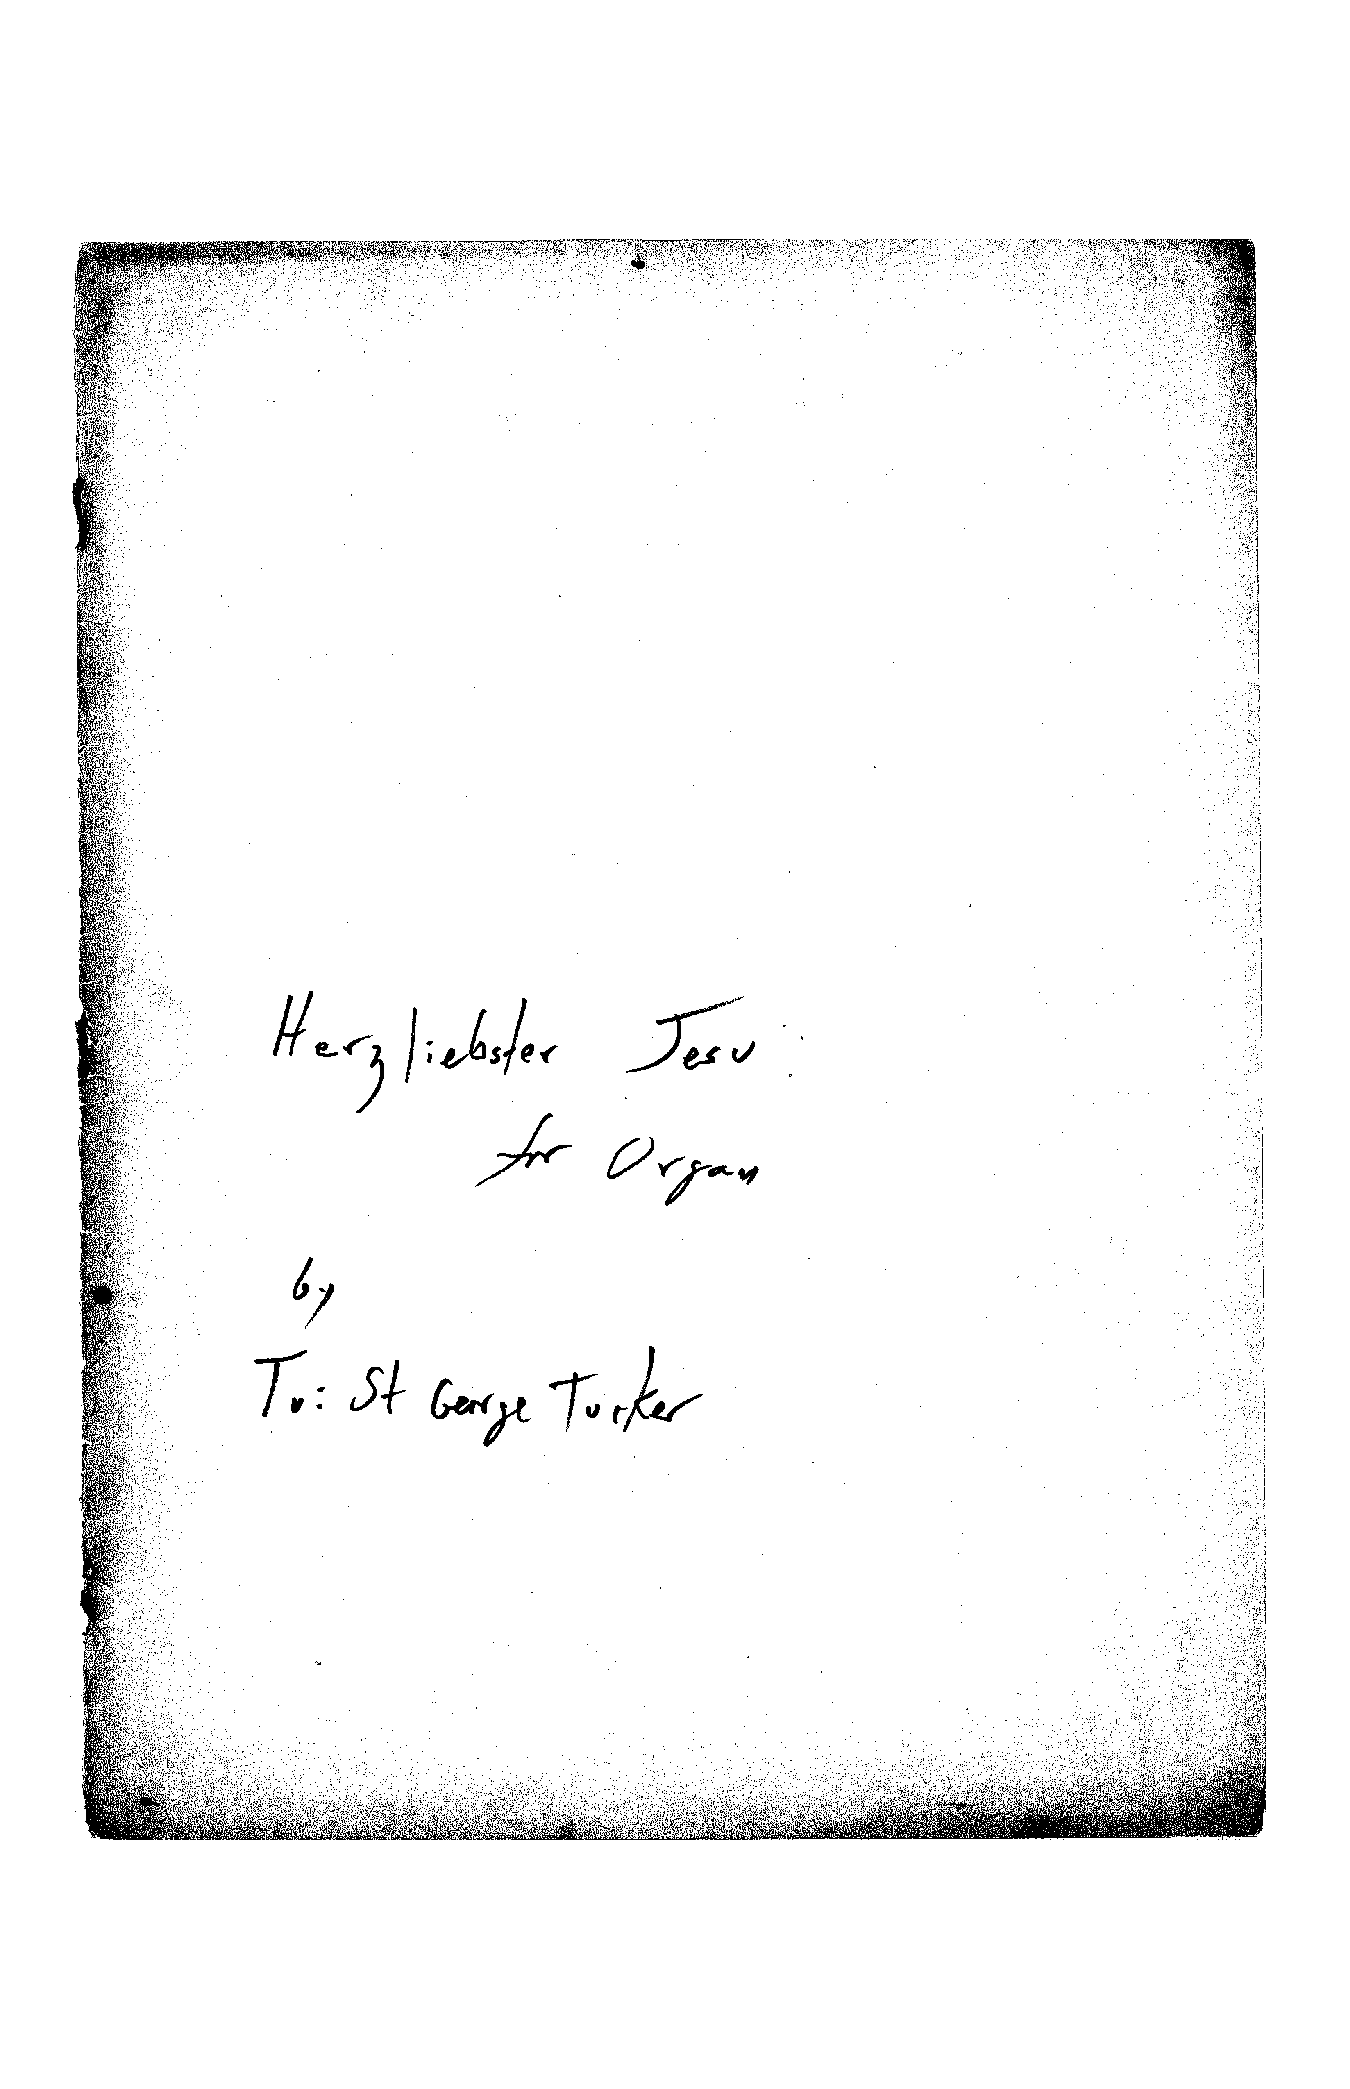 Herzliebster Jesu
for Organ
by
Tu: St George Tucker